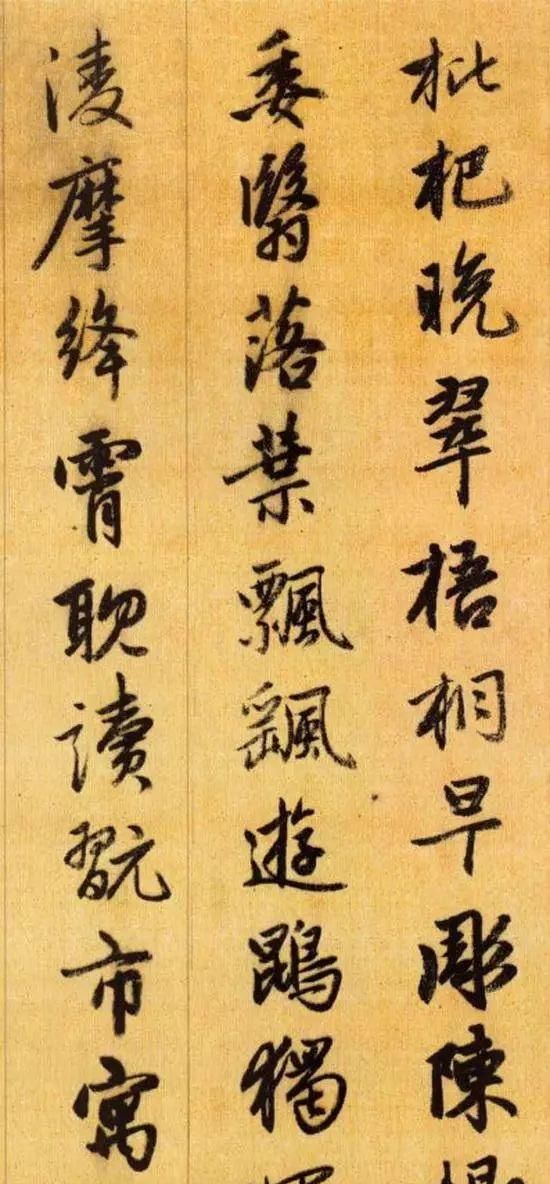 枇杷晚翠梧桐早彫陳
委翳落葉飄飖遊鵾獨
凌摩絳霄耽讀翫市寓